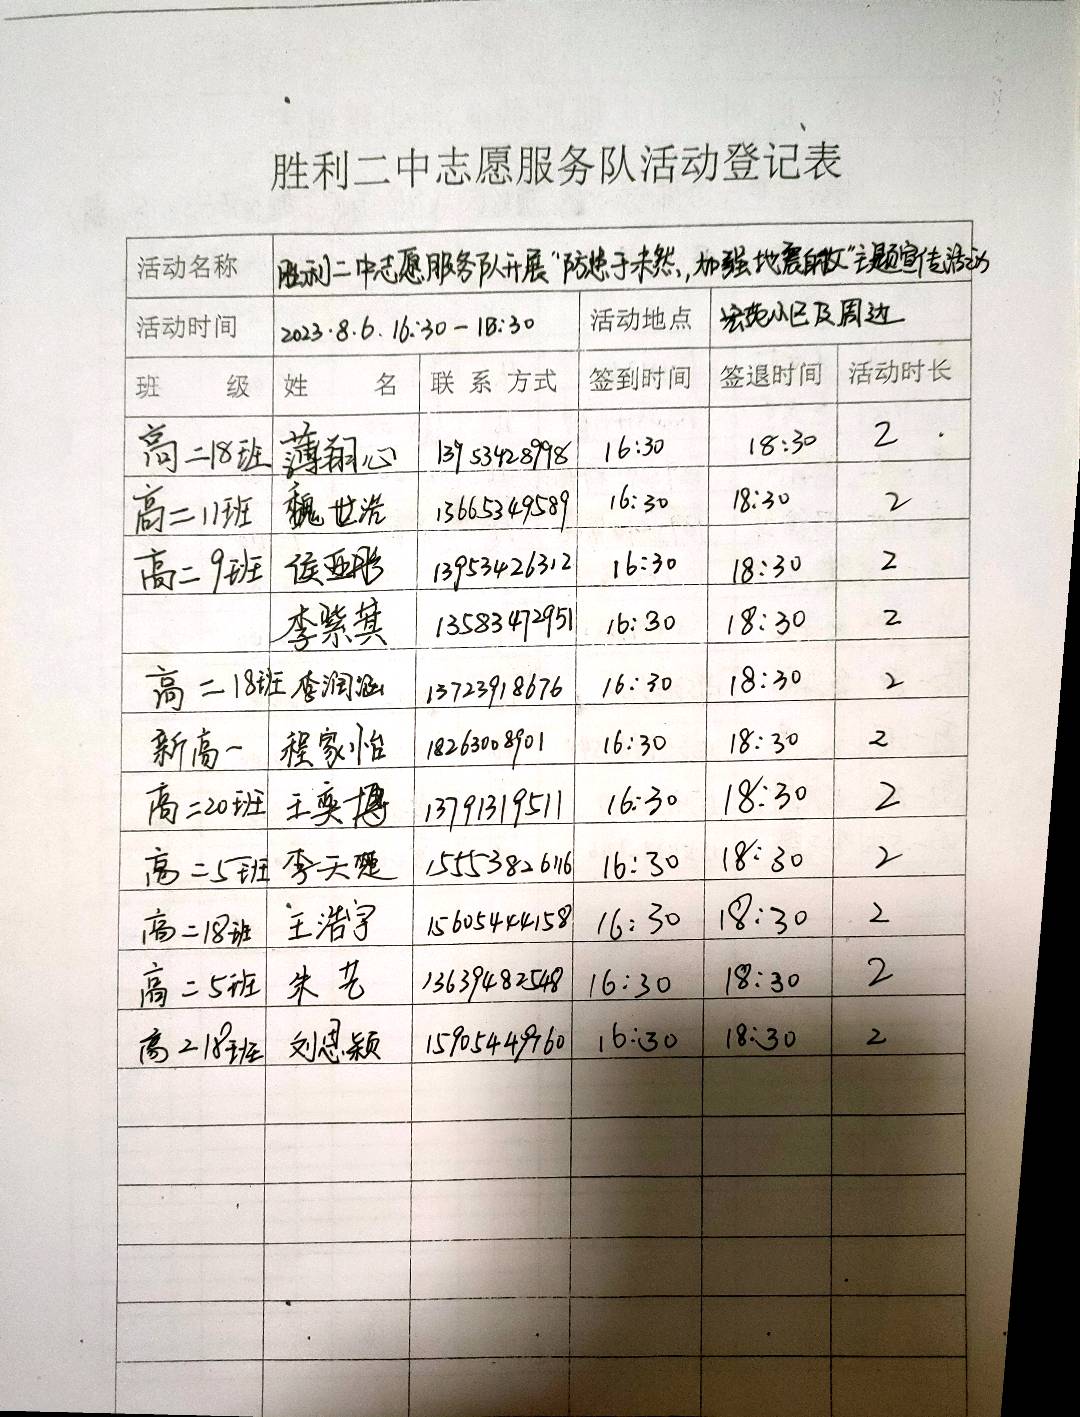 胜利二中志愿服务队活动登记表
活动名称 胜利二中志愿服务队开展“防患于未然,,加强地震自救”主题宣传活动
活动时间 2023.8.6. 16:30-18:30 活动地点 宏苑小区及周边
班 级 姓 名 联系方式 签到时间 签退时间 活动时长
高二18班 薄翔心 13953428998 16:30 18:30 2
高二11班 魏世浩 13665349589 16:30 18:30 2
高二9班 侯亚彤 13953426312 16:30 18:30 2
李紫萁 13583472951 16:30 18:30 2
高二18班 李润涵 13723918676 16:30 18:30 2
新高一 程家怡 18263008901 16:30 18:30 2
高二20班 王奕博 13791319511 16:30 18:30 2
高二5班 李天楚 16:30 18:30 2
高二18班 王浩宇 15605444158 16:30 18:30 2
高二5班 朱艺 13639482548 16:30 18:30 2
高二18班 刘思颖 15905449760 16:30 18:30 2